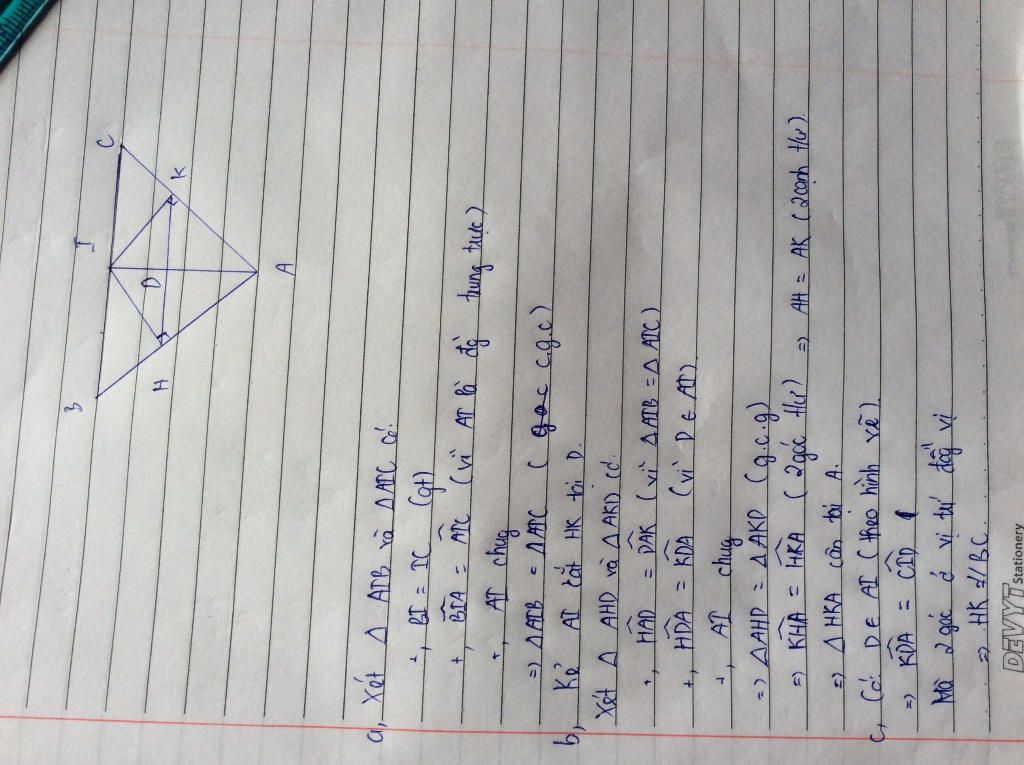 B
I
C
H
D
K
A
a, Xét Δ AIB và Δ AIC có:
+, BI = IC (gt)
+, BIA = AIC (vì AI là đg trung trực)
+, AI chug
=> Δ AIB = Δ AIC ( c.g.c)
b, Kẻ AI cắt HK tại D.
Xét Δ AHD và Δ AKD có:
+, HAD = DAK (vì Δ AIB = Δ AIC)
+, HDA = KDA (vì D ∈ AI)
+, AI chug
=> Δ AHD = Δ AKD (g.c.g)
=> KHA = HKA ( 2 góc t/ư) => AH = AK (2 cạnh t/ư)
=> Δ HKA cân tại A.
c, Có: D ∈ AI (theo hình vẽ)
=> KDA = CID
Mà 2 góc ở vị trí đồng vị
=> HK // BC.
DEVYT Stationery